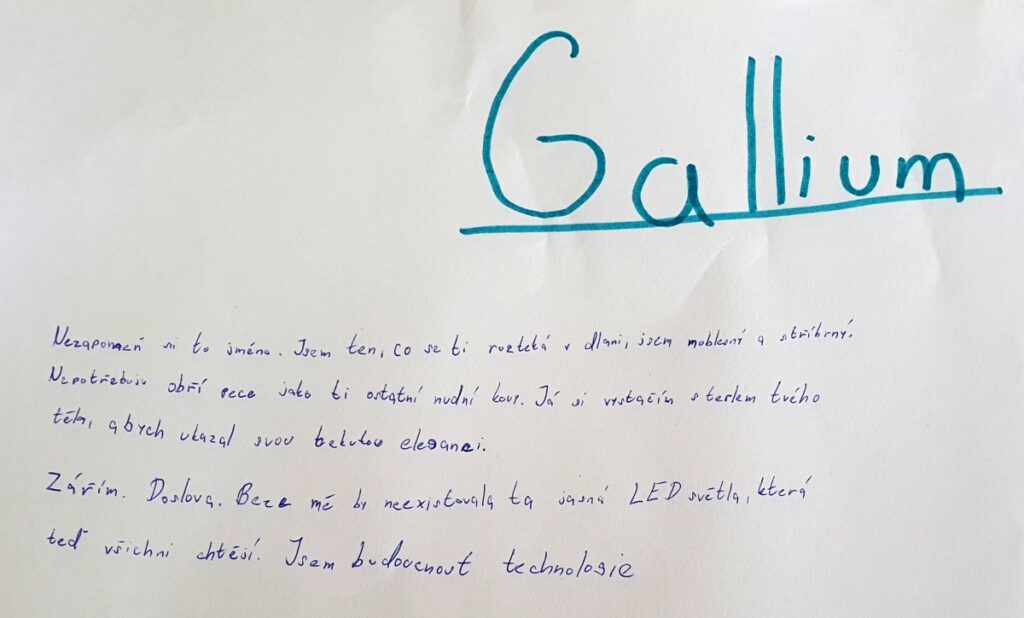 Gallium
Nezapomeň si to jméno. Jsem ten, co se ti roztéká v dlani, jsem a stříbrný.
Nepotřebuju obří pece jako ti ostatní nudní kovy. Já si vystačím s teplem tvého
těla, abych ukázal svou tekutou eleganci.
Zářím. Doslova. Beze mě by neexistovala ta jasná LED světla, která
teď všichni chtějí. Jsem budoucnout technologie